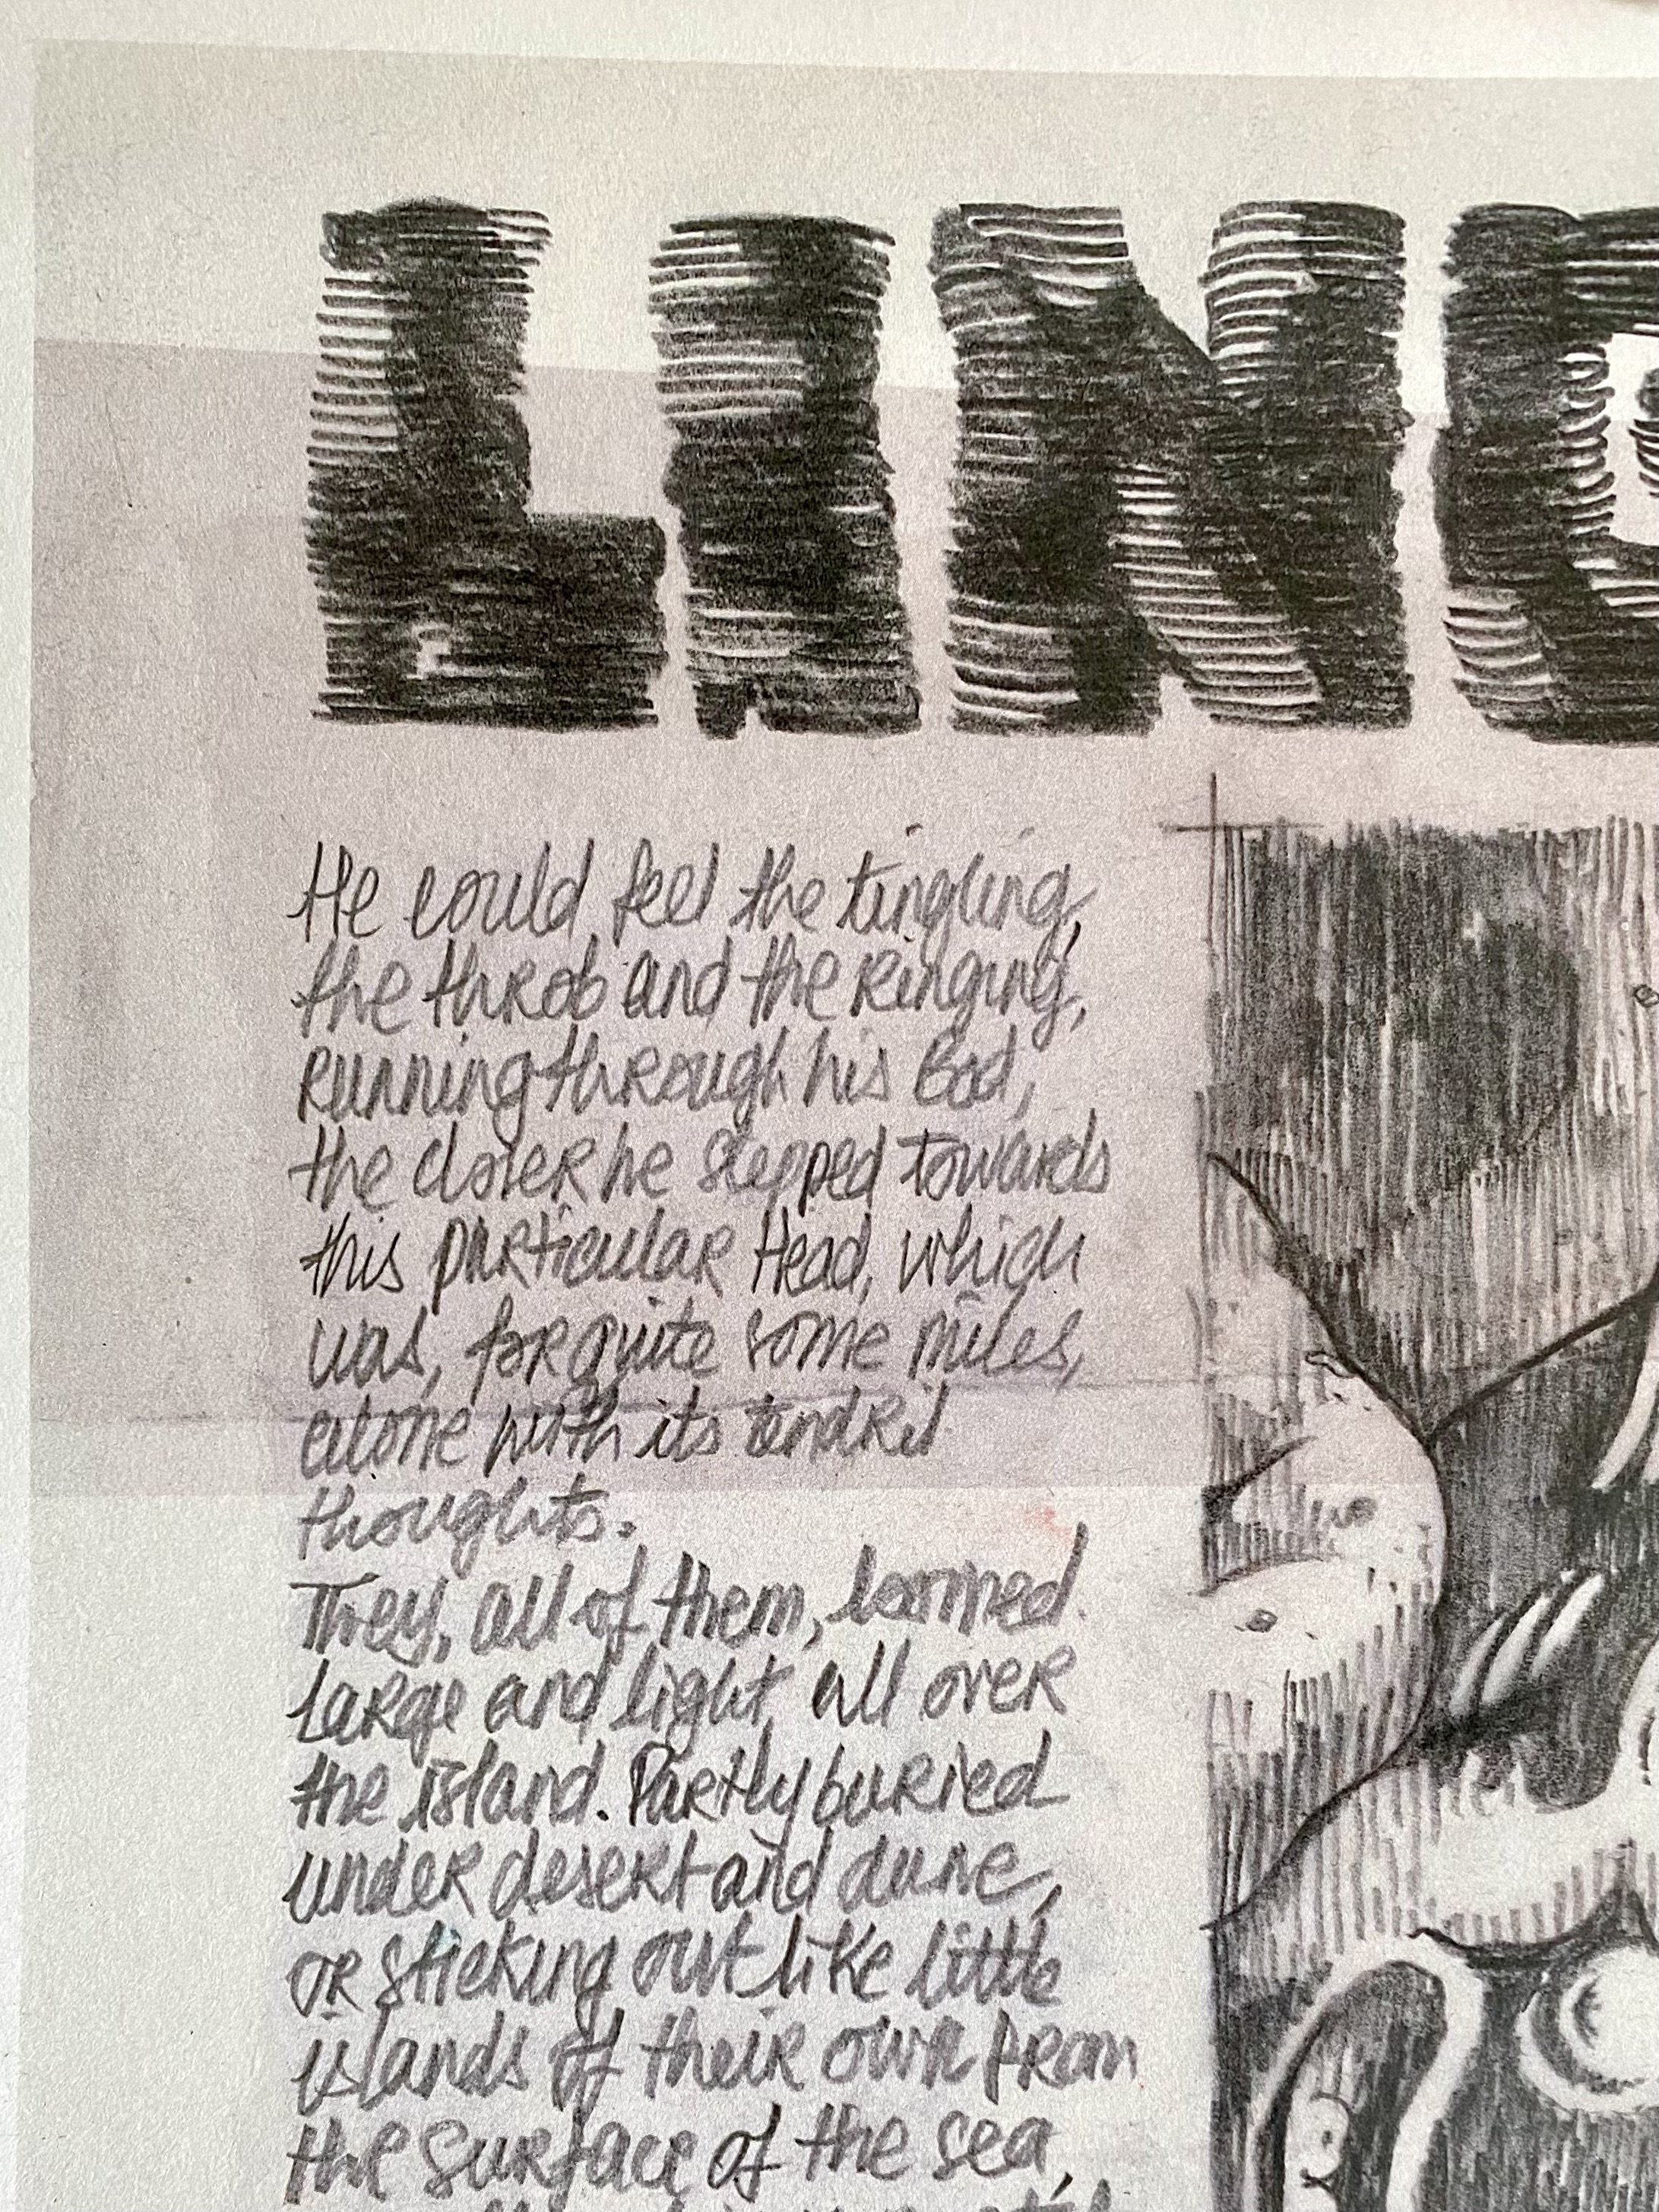 LING
He could feel the tingling,
the throb and the ringing,
running through his Bod,
the closer he stepped towards
this particular Head, which
was, for quite some miles,
alone with its tendril
thoughts.
They, all of them, loomed.
Large and light, all over
the island. Partly buried
under desert and dune,
or sticking out like little
islands of their own from
the surface of the sea,